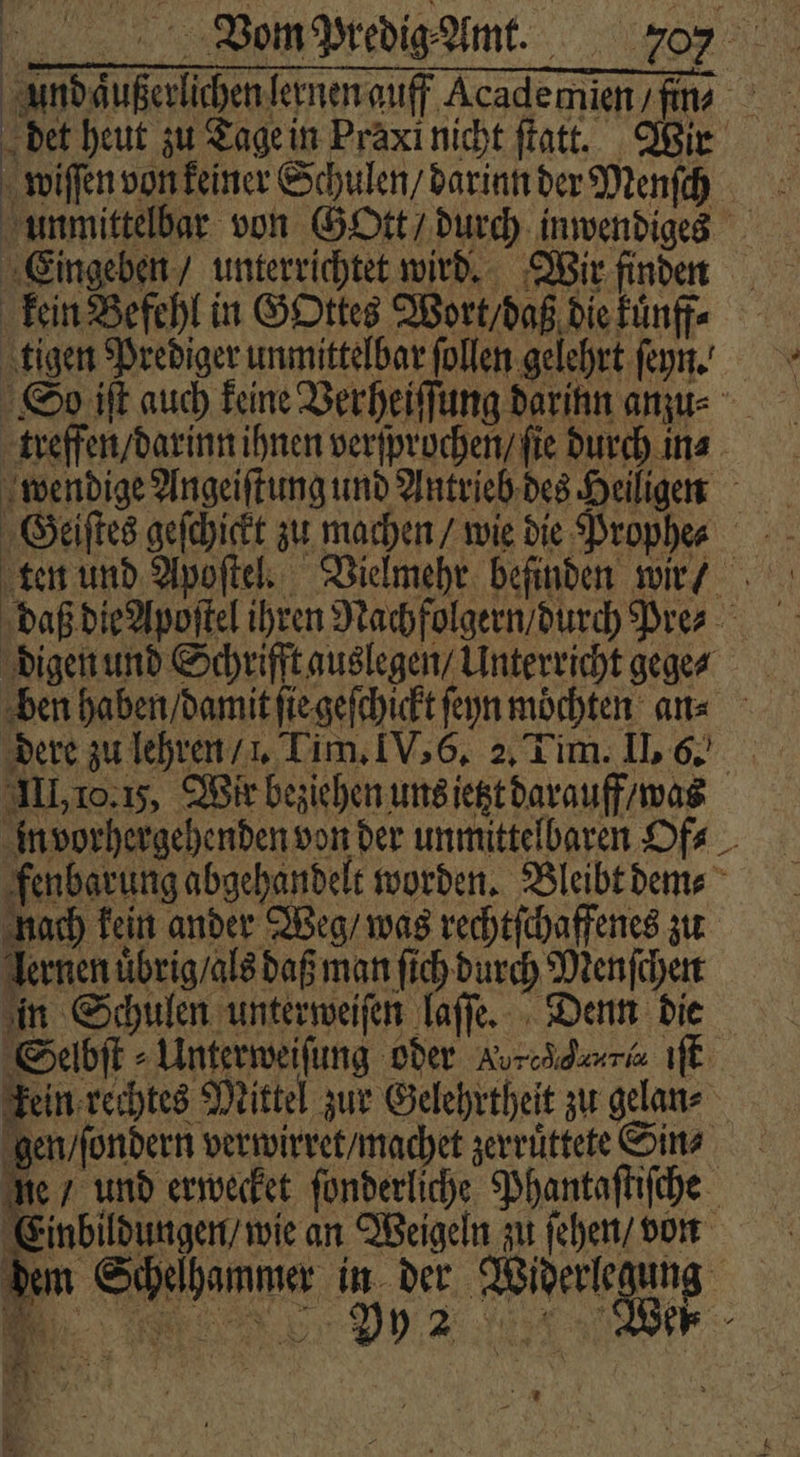 Vom Predig-Amt. 707
und aͤußerlichen lernen auff Academien / fin-
det heut zu Tage in Praxi nicht ſtatt. Wir
wiſſen von keiner Schulen / darinn der Menſch
unmittelbar von GOtt / durch inwendiges
Eingeben / unterrichtet wird. Wir finden
kein Befehl in GOttes Wort / daß die kuͤnff-
tigen Prediger unmittelbar ſollen gelehrt ſeyn.
So iſt auch keine Verheiſſung darinn anzu-
treffen / darinn ihnen verſprochen / ſie durch in-
wendige Angeiſtung und Antrieb des Heiligen
Geiſtes geſchickt zu machen / wie die Prophe-
ten und Apoſtel. Vielmehr befinden wir /
daß die Apoſtel ihren Nachfolgern / durch Pre-
digen und Schrifft auslegen / Unterricht gege-
ben haben / damit ſie geſchickt ſeyn moͤchten an-
dere zu lehren / 1. Tim. IV, 6. 2. Tim. II, 6.
III, 10. 15, Wir beziehen uns ietzt darauff / was
in vorhergehenden von der unmittelbaren Of-
fenbarung abgehandelt worden. Bleibt dem-
nach kein ander Weg / was rechtſchaffenes zu
lernen uͤbrig / als daß man ſich durch Menſchen
in Schulen unterweiſen laſſe. Denn die
Selbſt-Unterweiſung oder iſt
kein rechtes Mittel zur Gelehrtheit zu gelan-
gen / ſondern verwirret / machet zerruͤttete Sin-
ne / und erwecket ſonderliche Phantaſtiſche
Einbildungen / wie an Weigeln zu ſehen / von
dem Schelhammer in der Widerlegung
Yy 2 Wei-